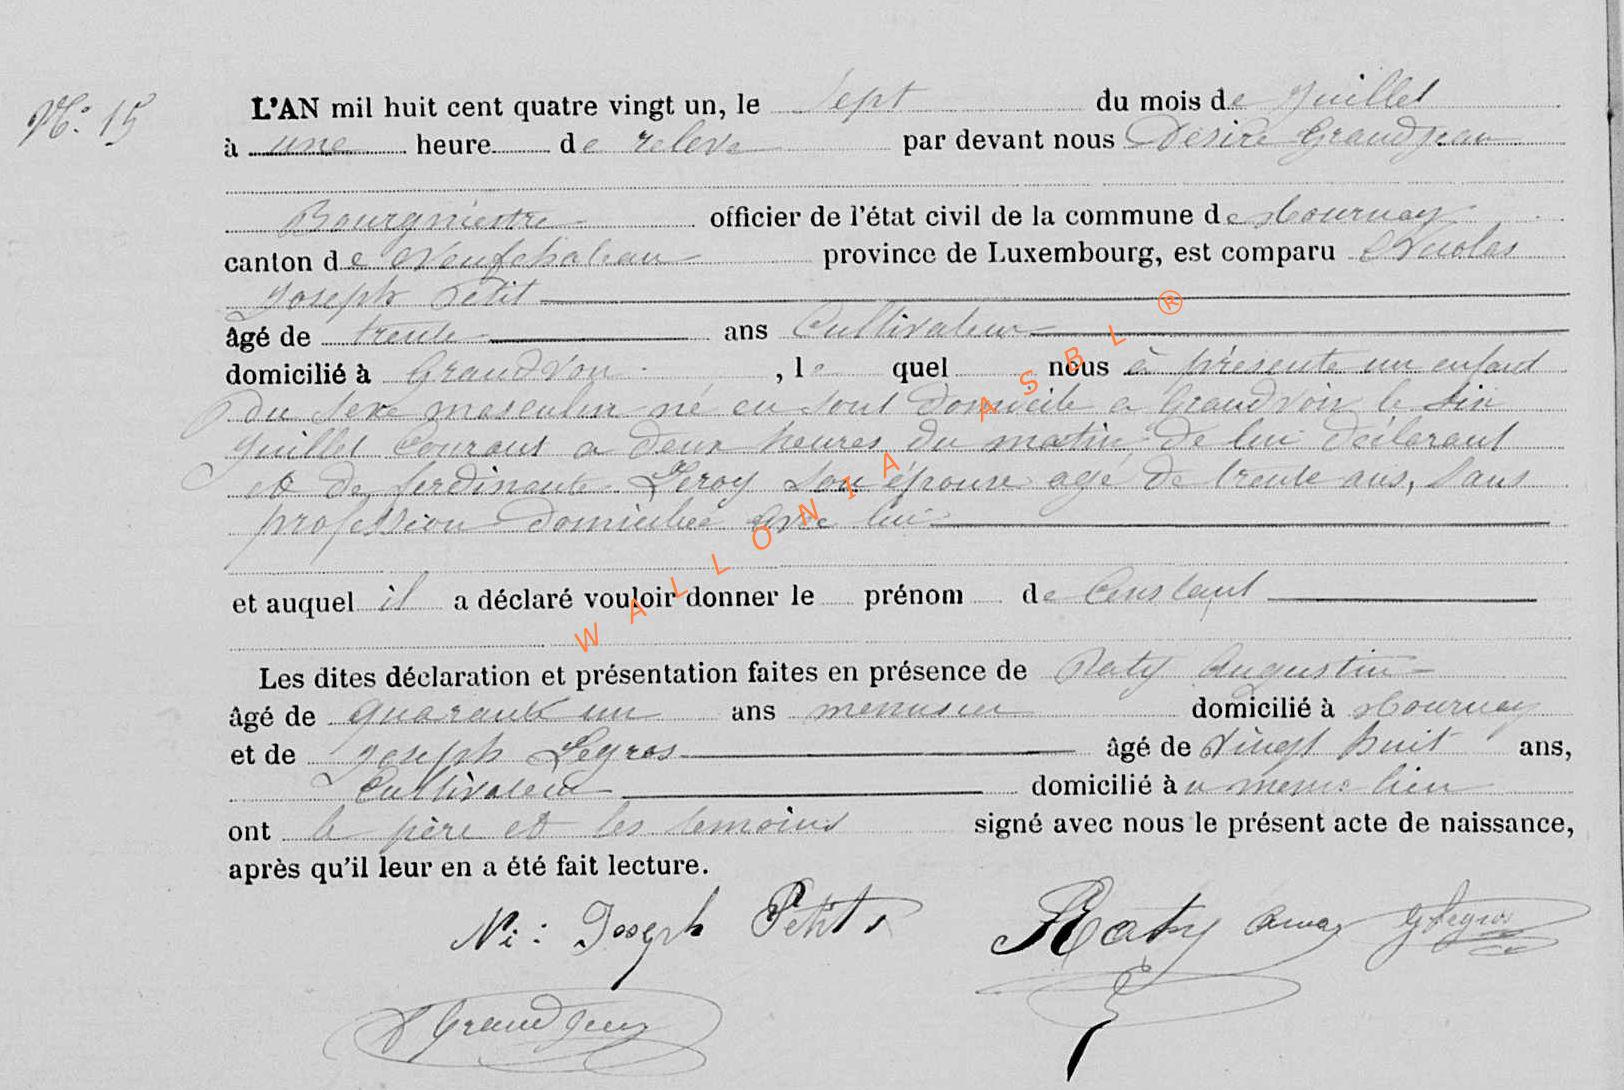 N.º 15
L'AN mil huit cent quatre vingt un, le sept du mois de Juillet
à une heure de relevé par devant nous Désiré Grandjean
Bourgmestre officier de l'état civil de la commune de Tournay
canton de Neufchateau province de Luxembourg, est comparu Nicolas
Joseph Petit
âgé de trente ans Cultivateur
domicilié à Grandvoir, le quel nous à présenté un enfant
du sexe masculin né en sont domicile a Grandvoir le six
Juillet Courant a deux heures du matin de lui déclarant
et de ferdinante Leroy son épouse agé de trente ans, sans
profession domiciliée avec lui
et auquel il a déclaré vouloir donner le prénom de Constant
Les dites déclaration et présentation faites en présence de Raty Augustin
âgé de quarante un ans menusier domicilié à Tournay
et de Joseph Legros âgé de vingt huit ans,
Cultivateur domicilié àu meme lieu
ont le père et les temoins signé avec nous le présent acte de naissance,
après qu'il leur en a été fait lecture.
Ni: Joseph Petit Raty J Legros
D Grandjean
WALLONIA ASBL ®